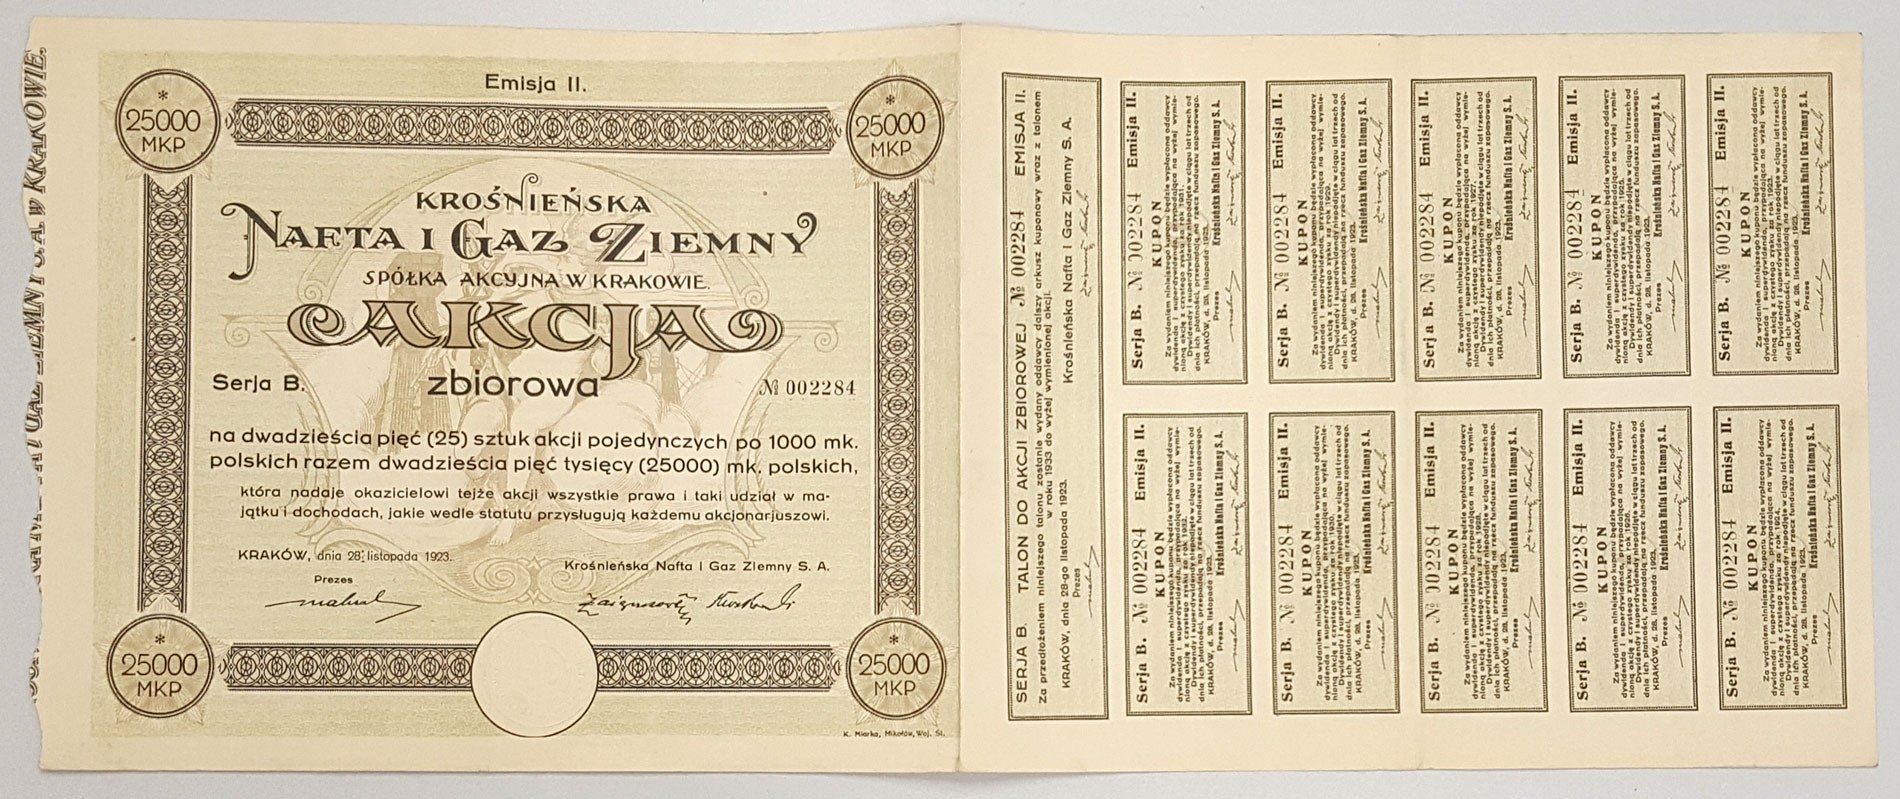 Emisja II.
* 25000 MKP
* 25000 MKP
KROŚNIEŃSKA
NAFTA I GAZ ZIEMNY
SPÓŁKA AKCYJNA W KRAKOWIE.
AKCJA
zbiorowa
Serja B.
№ 002284
na dwadzieścia pięć (25) sztuk akcji pojedynczych po 1000 mk.
polskich razem dwadzieścia pięć tysięcy (25000) mk. polskich,
która nadaje okazicielowi tejże akcji wszystkie prawa i taki udział w ma-
jątku i dochodach, jakie wedle statutu przysługują każdemu akcjonarjuszowi.
KRAKÓW, dnia 28. listopada 1923.
Krośnieńska Nafta i Gaz Ziemny S. A.
Prezes
* 25000 MKP
* 25000 MKP
K. Miarka, Mikołów, Woj. Śl.
SERJA B. TALON DO AKCJI ZBIOROWEJ № 002284 EMISJA II.
Za przedłożeniem niniejszego talonu zostanie wydany oddawcy dalszy arkusz kuponowy wraz z talonem
w roku 1933 do wyżej wymienionej akcji.
KRAKÓW, dnia 28-go listopada 1923.
Krośnieńska Nafta i Gaz Ziemny S. A.
Prezes
Serja B. № 002284 Emisja II.
KUPON
Za wydaniem niniejszego kuponu będzie wypłacona oddawcy
dywidenda i superdywidenda, przypadająca na wyżej wymie-
nioną akcję z czystego zysku za rok 1931.
Dywidendy i superdywidendy niepodjęte w ciągu lat trzech od
dnia ich płatności, przepadają na rzecz funduszu zapasowego.
KRAKÓW, d. 28. listopada 1923.
Krośnieńska Nafta i Gaz Ziemny S. A.
Prezes
Serja B. № 002284 Emisja II.
KUPON
Za wydaniem niniejszego kuponu będzie wypłacona oddawcy
dywidenda i superdywidenda, przypadająca na wyżej wymie-
nioną akcję z czystego zysku za rok 1929.
Dywidendy i superdywidendy niepodjęte w ciągu lat trzech od
dnia ich płatności, przepadają na rzecz funduszu zapasowego.
KRAKÓW, d. 28. listopada 1923.
Krośnieńska Nafta i Gaz Ziemny S. A.
Prezes
Serja B. № 002284 Emisja II.
KUPON
Za wydaniem niniejszego kuponu będzie wypłacona oddawcy
dywidenda i superdywidenda, przypadająca na wyżej wymie-
nioną akcję z czystego zysku za rok 1927.
Dywidendy i superdywidendy niepodjęte w ciągu lat trzech od
dnia ich płatności, przepadają na rzecz funduszu zapasowego.
KRAKÓW, d. 28. listopada 1923.
Krośnieńska Nafta i Gaz Ziemny S. A.
Prezes
Serja B. № 002284 Emisja II.
KUPON
Za wydaniem niniejszego kuponu będzie wypłacona oddawcy
dywidenda i superdywidenda, przypadająca na wyżej wymie-
nioną akcję z czystego zysku za rok 1925.
Dywidendy i superdywidendy niepodjęte w ciągu lat trzech od
dnia ich płatności, przepadają na rzecz funduszu zapasowego.
KRAKÓW, d. 28. listopada 1923.
Krośnieńska Nafta i Gaz Ziemny S. A.
Prezes
Serja B. № 002284 Emisja II.
KUPON
Za wydaniem niniejszego kuponu będzie wypłacona oddawcy
dywidenda i superdywidenda, przypadająca na wyżej wymie-
nioną akcję z czystego zysku za rok 1923.
Dywidendy i superdywidendy niepodjęte w ciągu lat trzech od
dnia ich płatności, przepadają na rzecz funduszu zapasowego.
KRAKÓW, d. 28. listopada 1923.
Krośnieńska Nafta i Gaz Ziemny S. A.
Prezes
Serja B. № 002284 Emisja II.
KUPON
Za wydaniem niniejszego kuponu będzie wypłacona oddawcy
dywidenda i superdywidenda, przypadająca na wyżej wymie-
nioną akcję z czystego zysku za rok 1932.
Dywidendy i superdywidendy niepodjęte w ciągu lat trzech od
dnia ich płatności, przepadają na rzecz funduszu zapasowego.
KRAKÓW, d. 28. listopada 1923.
Krośnieńska Nafta i Gaz Ziemny S. A.
Prezes
Serja B. № 002284 Emisja II.
KUPON
Za wydaniem niniejszego kuponu będzie wypłacona oddawcy
dywidenda i superdywidenda, przypadająca na wyżej wymie-
nioną akcję z czystego zysku za rok 1930.
Dywidendy i superdywidendy niepodjęte w ciągu lat trzech od
dnia ich płatności, przepadają na rzecz funduszu zapasowego.
KRAKÓW, d. 28. listopada 1923.
Krośnieńska Nafta i Gaz Ziemny S. A.
Prezes
Serja B. № 002284 Emisja II.
KUPON
Za wydaniem niniejszego kuponu będzie wypłacona oddawcy
dywidenda i superdywidenda, przypadająca na wyżej wymie-
nioną akcję z czystego zysku za rok 1928.
Dywidendy i superdywidendy niepodjęte w ciągu lat trzech od
dnia ich płatności, przepadają na rzecz funduszu zapasowego.
KRAKÓW, d. 28. listopada 1923.
Krośnieńska Nafta i Gaz Ziemny S. A.
Prezes
Serja B. № 002284 Emisja II.
KUPON
Za wydaniem niniejszego kuponu będzie wypłacona oddawcy
dywidenda i superdywidenda, przypadająca na wyżej wymie-
nioną akcję z czystego zysku za rok 1926.
Dywidendy i superdywidendy niepodjęte w ciągu lat trzech od
dnia ich płatności, przepadają na rzecz funduszu zapasowego.
KRAKÓW, d. 28. listopada 1923.
Krośnieńska Nafta i Gaz Ziemny S. A.
Prezes
Serja B. № 002284 Emisja II.
KUPON
Za wydaniem niniejszego kuponu będzie wypłacona oddawcy
dywidenda i superdywidenda, przypadająca na wyżej wymie-
nioną akcję z czystego zysku za rok 1924.
Dywidendy i superdywidendy niepodjęte w ciągu lat trzech od
dnia ich płatności, przepadają na rzecz funduszu zapasowego.
KRAKÓW, d. 28. listopada 1923.
Krośnieńska Nafta i Gaz Ziemny S. A.
Prezes